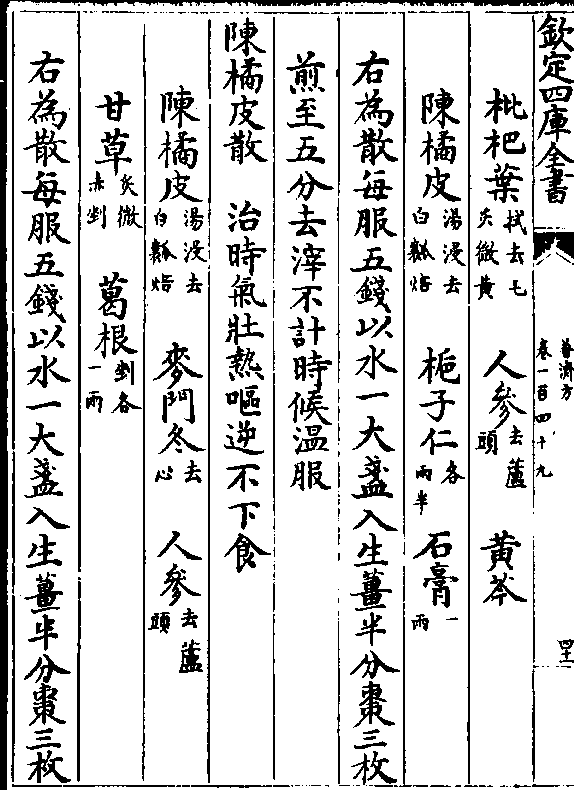 欽定四庫全書
普濟方
卷一百四十九
枇杷葉拭去毛炙微黄 人參去蘆頭 黄芩
陳橘皮湯浸去白瓤焙 梔子仁各兩半 石膏一兩
右為散每服五錢以水一大盞入生薑半分棗三枚
煎至五分去滓不計時候温服
陳橘皮散 治時氣壯熱嘔逆不下食
陳橘皮湯浸去白瓤焙 麥門冬去心 人參去蘆頭
甘草炙微赤剉 葛根剉各一兩
右為散每服五錢以水一大盞入生薑半分棗三枚